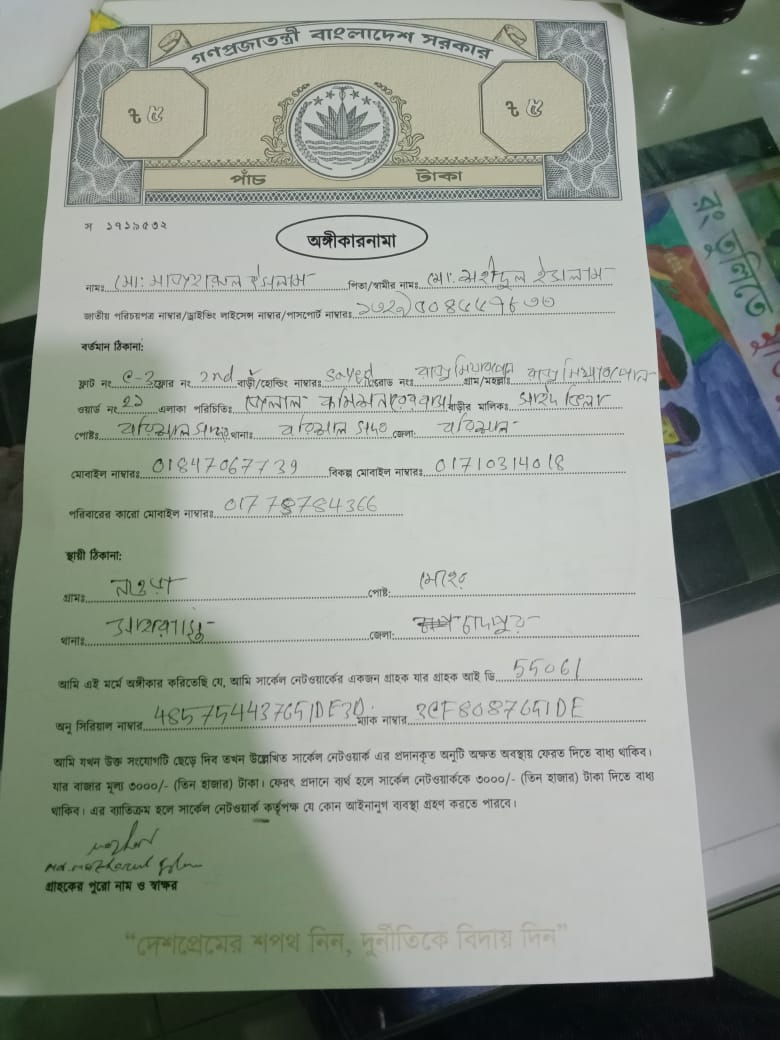 গণপ্রজাতন্ত্রী বাংলাদেশ সরকার
৳ ৫ ৳ ৫
পাঁচ টাকা
স ১৭১৯৫৩২
অঙ্গীকারনামা
নামঃ মো: মাজহারুল ইসলাম পিতা/স্বামীর নামঃ মো: শহীদুল ইসলাম
জাতীয় পরিচয়পত্র নাম্বার/ড্রাইভিং লাইসেন্স নাম্বার/পাসপোর্ট নাম্বারঃ
বর্তমান ঠিকানা:
ফ্লাট নং ফ্লোর নং 2nd বাড়ী/হোল্ডিং নাম্বারঃ Sayed রোড নংঃ গ্রাম/মহল্লাঃ
ওয়ার্ড নং এলাকা পরিচিতিঃ বাড়ীর মালিকঃ
পোষ্টঃ বরিশাল সদর থানাঃ বরিশাল সদর জেলা: বরিশাল
মোবাইল নাম্বারঃ 01847067739 বিকল্প মোবাইল নাম্বারঃ 01710314018
পরিবারের কারো মোবাইল নাম্বারঃ 01778784366
স্থায়ী ঠিকানা:
গ্রামঃ নওগা পোষ্ট:
থানাঃ জেলা: চাদপুর
আমি এই মর্মে অঙ্গীকার করিতেছি যে, আমি সার্কেল নেটওয়ার্কের একজন গ্রাহক যার গ্রাহক আই ডি 55061
অনু সিরিয়াল নাম্বার 485754437651DE3D ম্যাক নাম্বার 3CF8087651DE
আমি যখন উক্ত সংযোগটি ছেড়ে দিব তখন উল্লেখিত সার্কেল নেটওয়ার্ক এর প্রদানকৃত অনুটি অক্ষত অবস্থায় ফেরত দিতে বাধ্য থাকিব।
যার বাজার মূল্য ৩০০০/- (তিন হাজার) টাকা। ফেরৎ প্রদানে ব্যর্থ হলে সার্কেল নেটওয়ার্ককে ৩০০০/- (তিন হাজার) টাকা দিতে বাধ্য
থাকিব। এর ব্যতিক্রম হলে সার্কেল নেটওয়ার্ক কর্তৃপক্ষ যে কোন আইনানুগ ব্যবস্থা গ্রহণ করতে পারবে।
Md. Mazharul Islam
গ্রাহকের পুরো নাম ও স্বাক্ষর
“দেশপ্রেমের শপথ নিন, দুর্নীতিকে বিদায় দিন”
রং তুলিতে